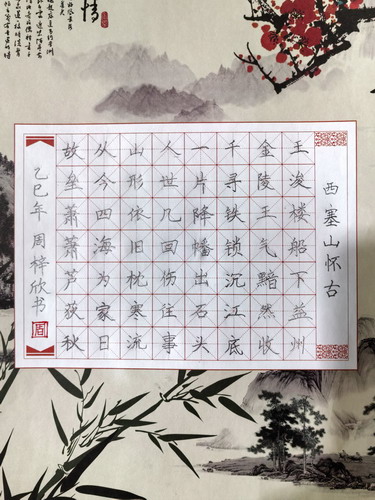 西塞山怀古
王浚楼船下益州
金陵王气黯然收
千寻铁锁沉江底
一片降幡出石头
人世几回伤往事
山形依旧枕寒流
从今四海为家日
故垒萧萧芦荻秋
乙巳年 周梓欣书
情